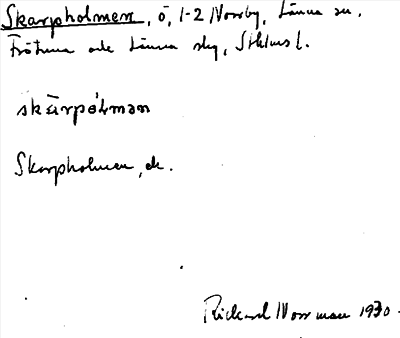 Skarpholmen, ö, 1-2 Norrby, Länna sn.
Frötuna och Länna skg, Sthlms l.
skàrpòɫmən
Skarpholmen, ek.
Rickard Norrman 1930